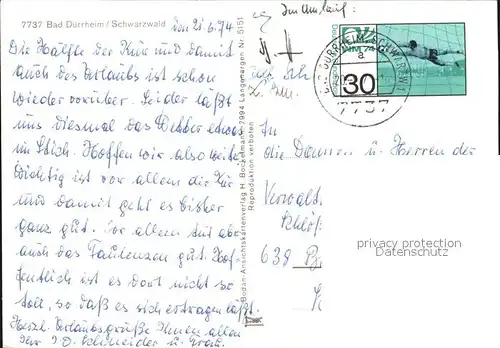 7737 Bad Dürrheim / Schwarzwald
den 21.6.74
Die Hälfte der Kur und damit
auch des Urlaubs ist schon
wieder vorüber. Leider läßt
uns diesmal das Wetter etwas
im Stich. Hoffen wir also weiter.
Wichtig ist vor allem die Kur
und damit geht es bisher
ganz gut. Vor allem tut aber
auch das Faulenzen gut. Hof-
fentlich ist es dort nicht so
toll, so daß es sich ertragen läßt.
Herzl. Urlaubsgrüße Ihnen allen
Ihr
Schneider u. Frau.
Bodan-Ansichtskartenverlag H. Bockelmann 7994 Langenargen Nr. 5151
Nachdruck verboten
Im Umlauf:
WM 74
30
BAD DÜRRHEIM, SCHWARZW 1
a
7737
An
die Damen u. Herren der
Verwalt.
Schlöß.
638
privacy protection
Datenschutz